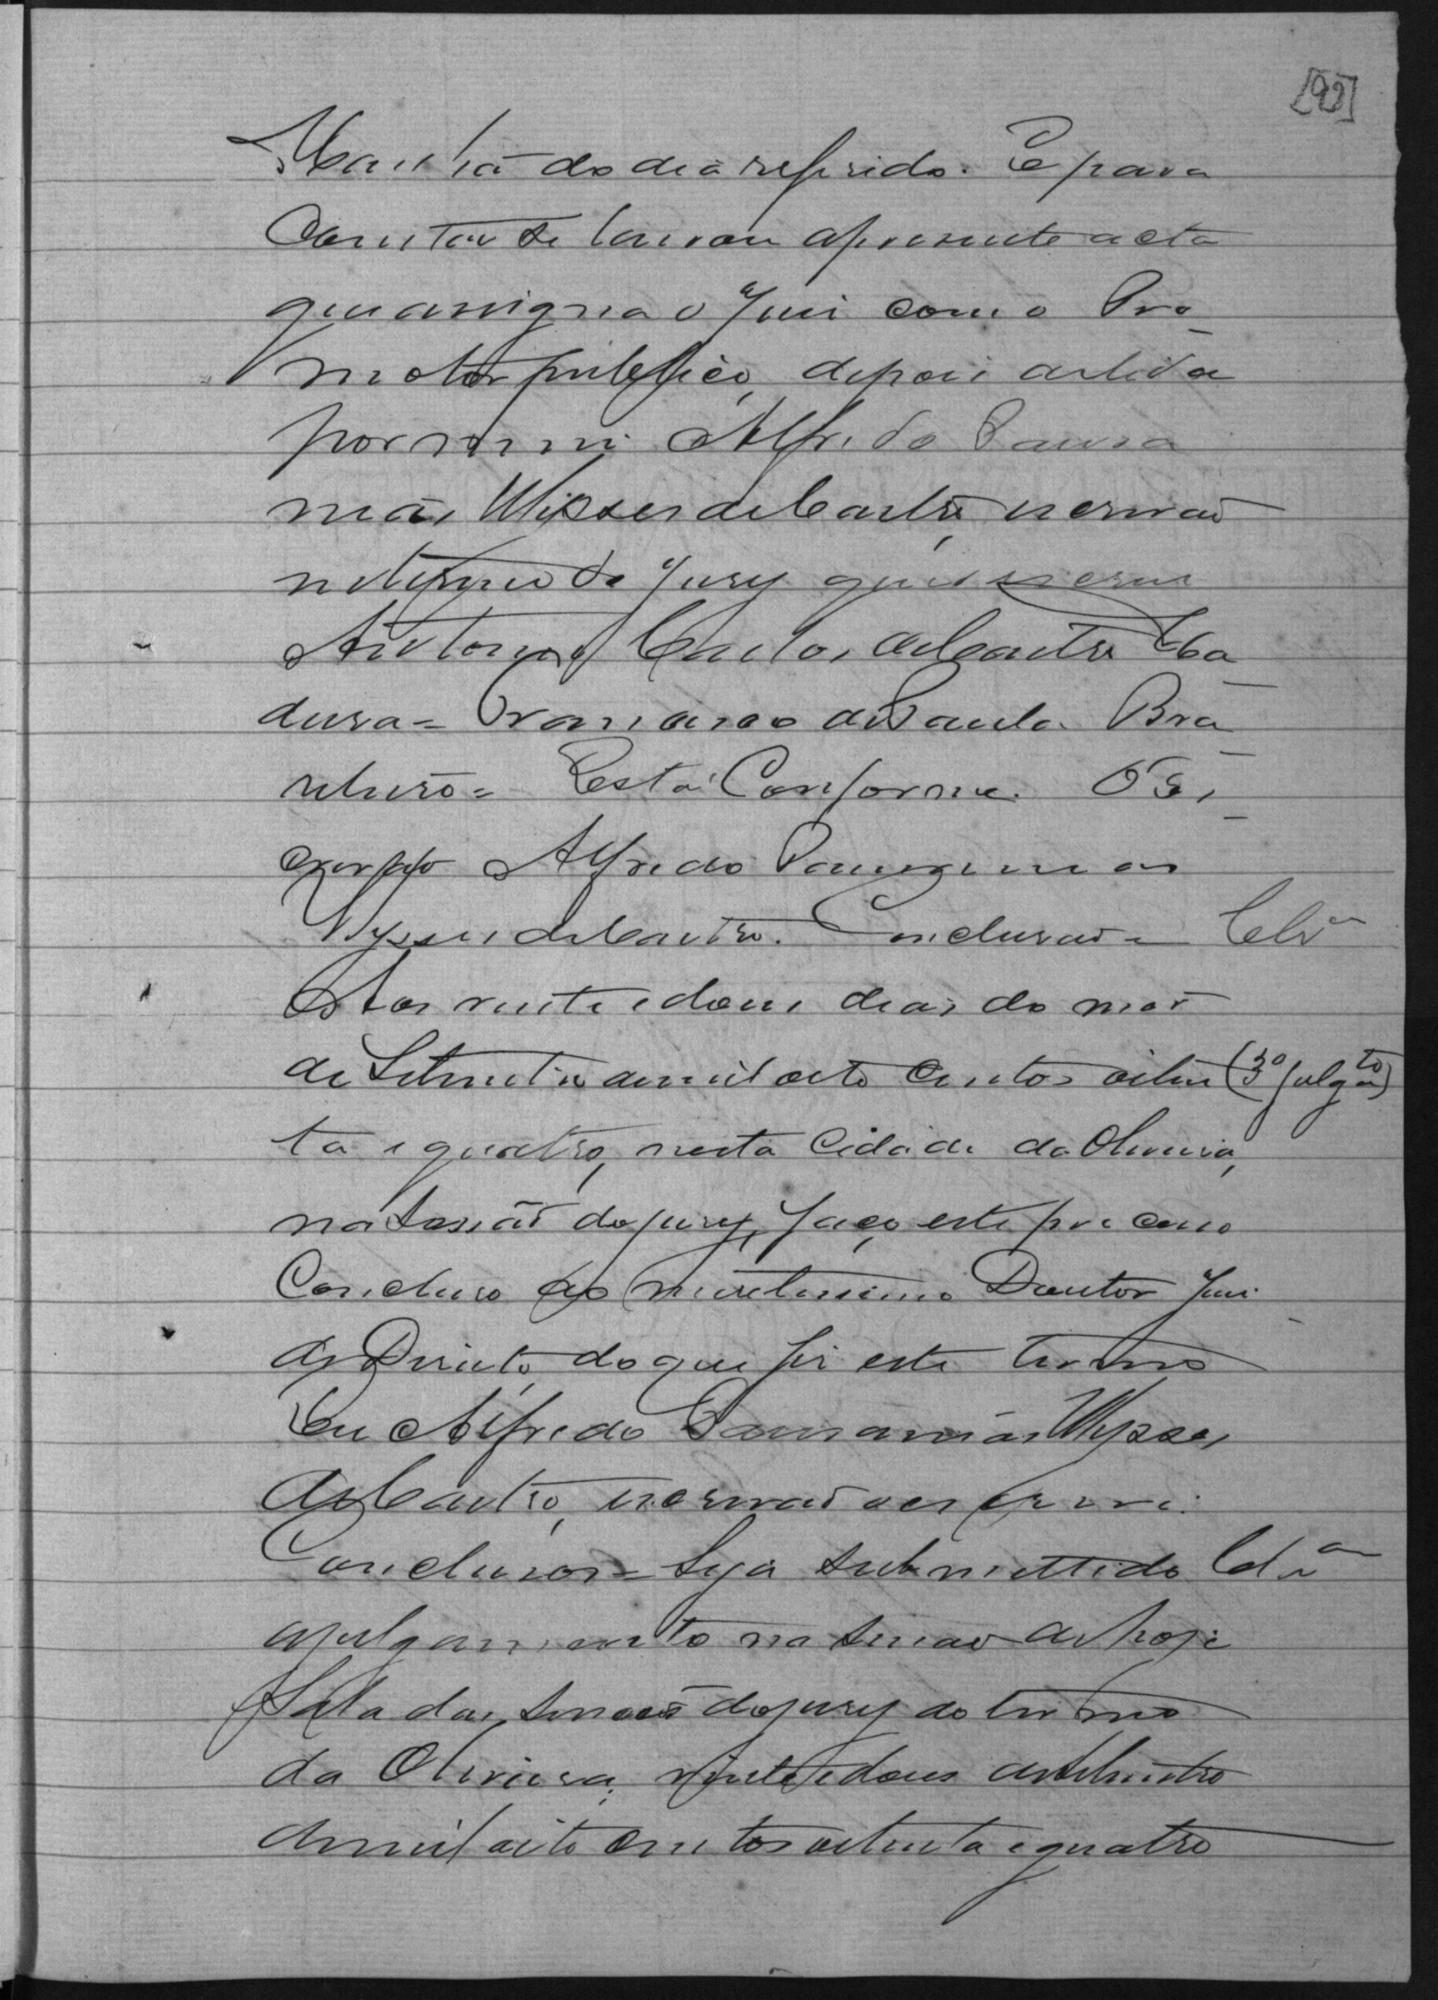 [92]
Manhã do dia referido. E para
Constar se lavrou a presente acta
que assigna o Juiz com o Pro-
motor publico, depois de lida
por mim Alfredo Pausa-
nias Ulisses de Castro, escrivão
interino do Jury que escrevi
Antonio Carlos de Castro Ma-
dura = Francisco de Paula Bra-
Está Conforme. O Es-
crivão Alfredo Pausanias
Ulysses de Castro. Conclusão = Clsª
Aos vinte e dous dias do mez
de Setembro de mil oito centos oiten (3º julgto)
ta e quatro, nesta Cidade da Oliveira,
na Sessão do jury, faço este processo
Concluso ao meretissimo Doutor Juiz
de Direito, do que fiz este termo
Eu Alfredo Pausanias Ulysses
de Castro, escrivão o escrevi.
Conclusos = Seja submettido Clsª
a julgamento na sessão de hoje
Sala das sessões do jury do termo
da Oliveira, vinte e dous de Setembro
de mil oito centos oitenta e quatro